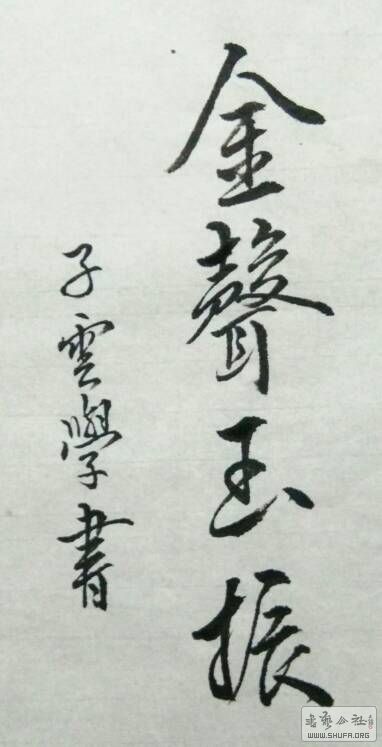 金聲玉振
子雲學書
書藝公社
WWW.SHUFA.ORG